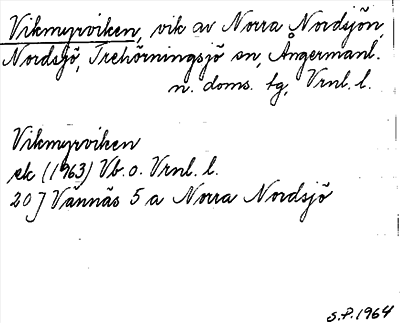 Vikmyrviken, vik av Norra Nordsjön,
Nordsjö, Trehörningsjö sn, Ångermanl.
n. doms. tg, Vrnl. l.
Vikmyrviken
ek (1963) Vb. o. Vrnl. l.
20 J Vännäs 5 a Norra Nordsjö
S.P. 1964